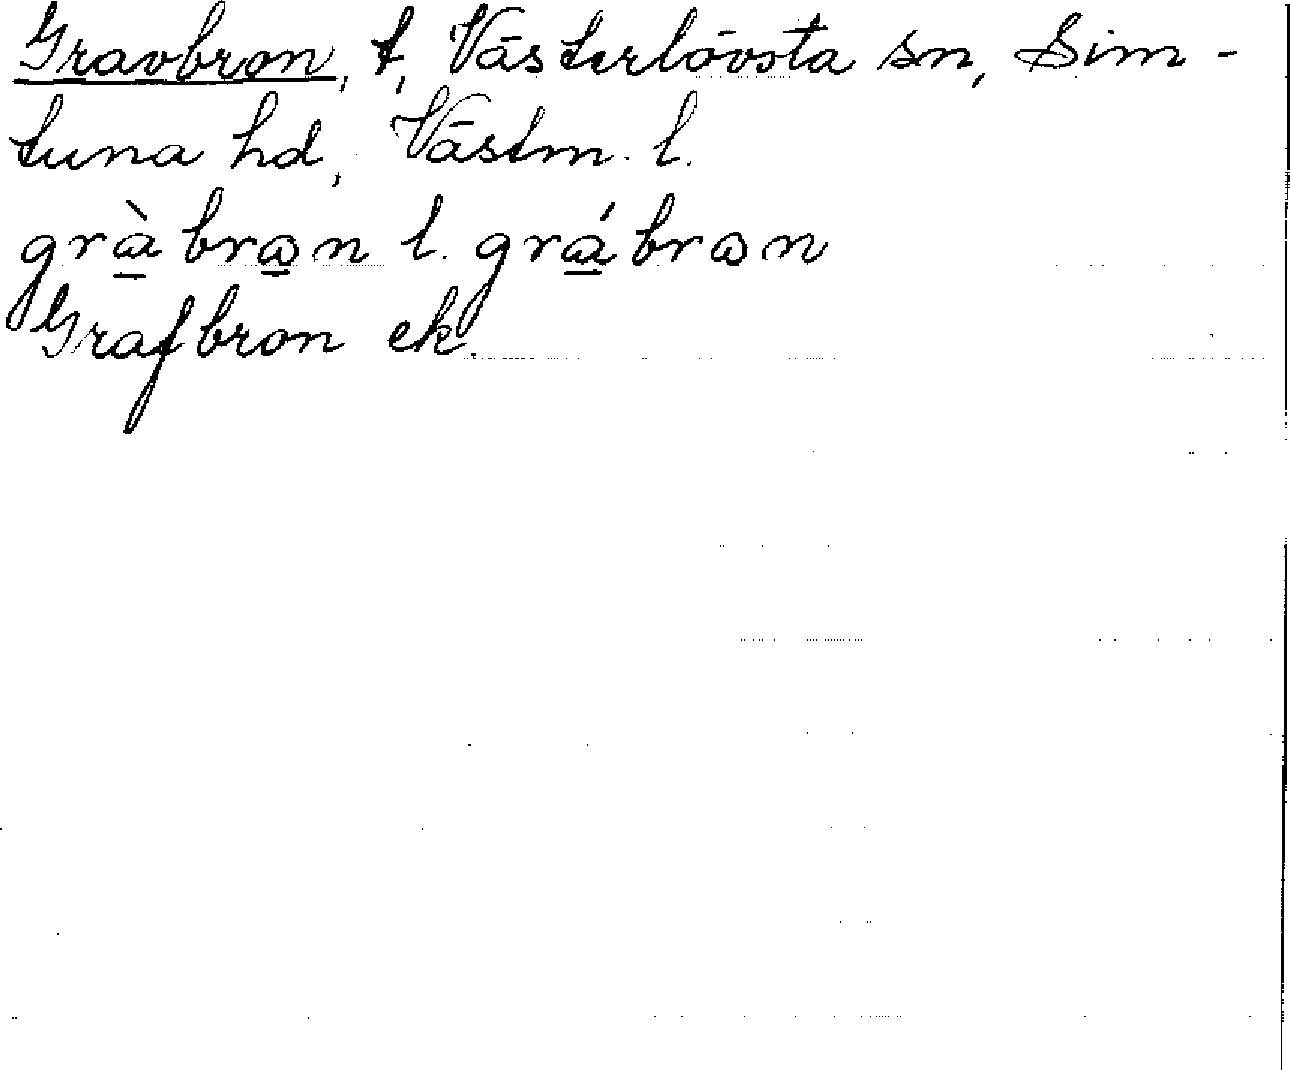 Gravbron, t, Västerlövsta sn, Sim-
tuna hd, Västm. l.
grɑ̲̀brω̲n l. grɑ̲́brωn
Grafbron ek.